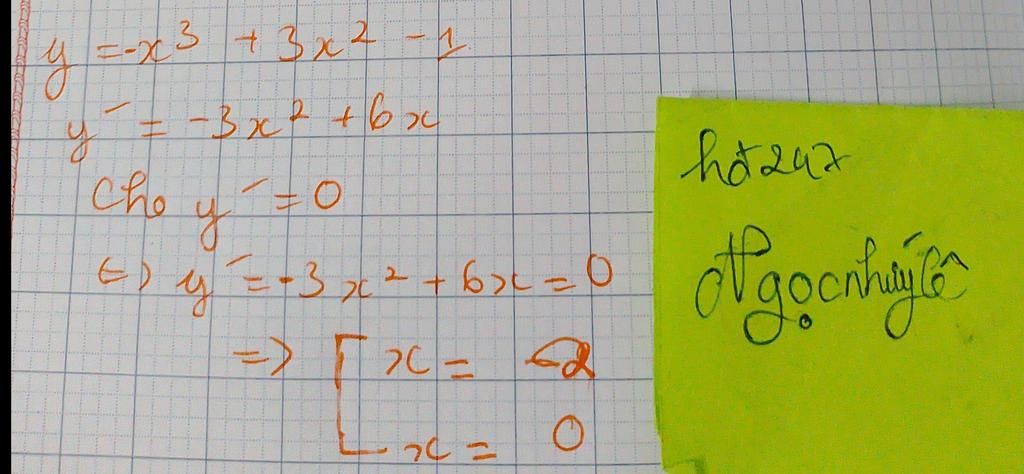 y = -x³ + 3x² - 1
y' = -3x² + 6x
Cho y' = 0
<=> y' = -3x² + 6x = 0
=> [ x = 2
x = 0
hđ247
Ngọcnhưýlê